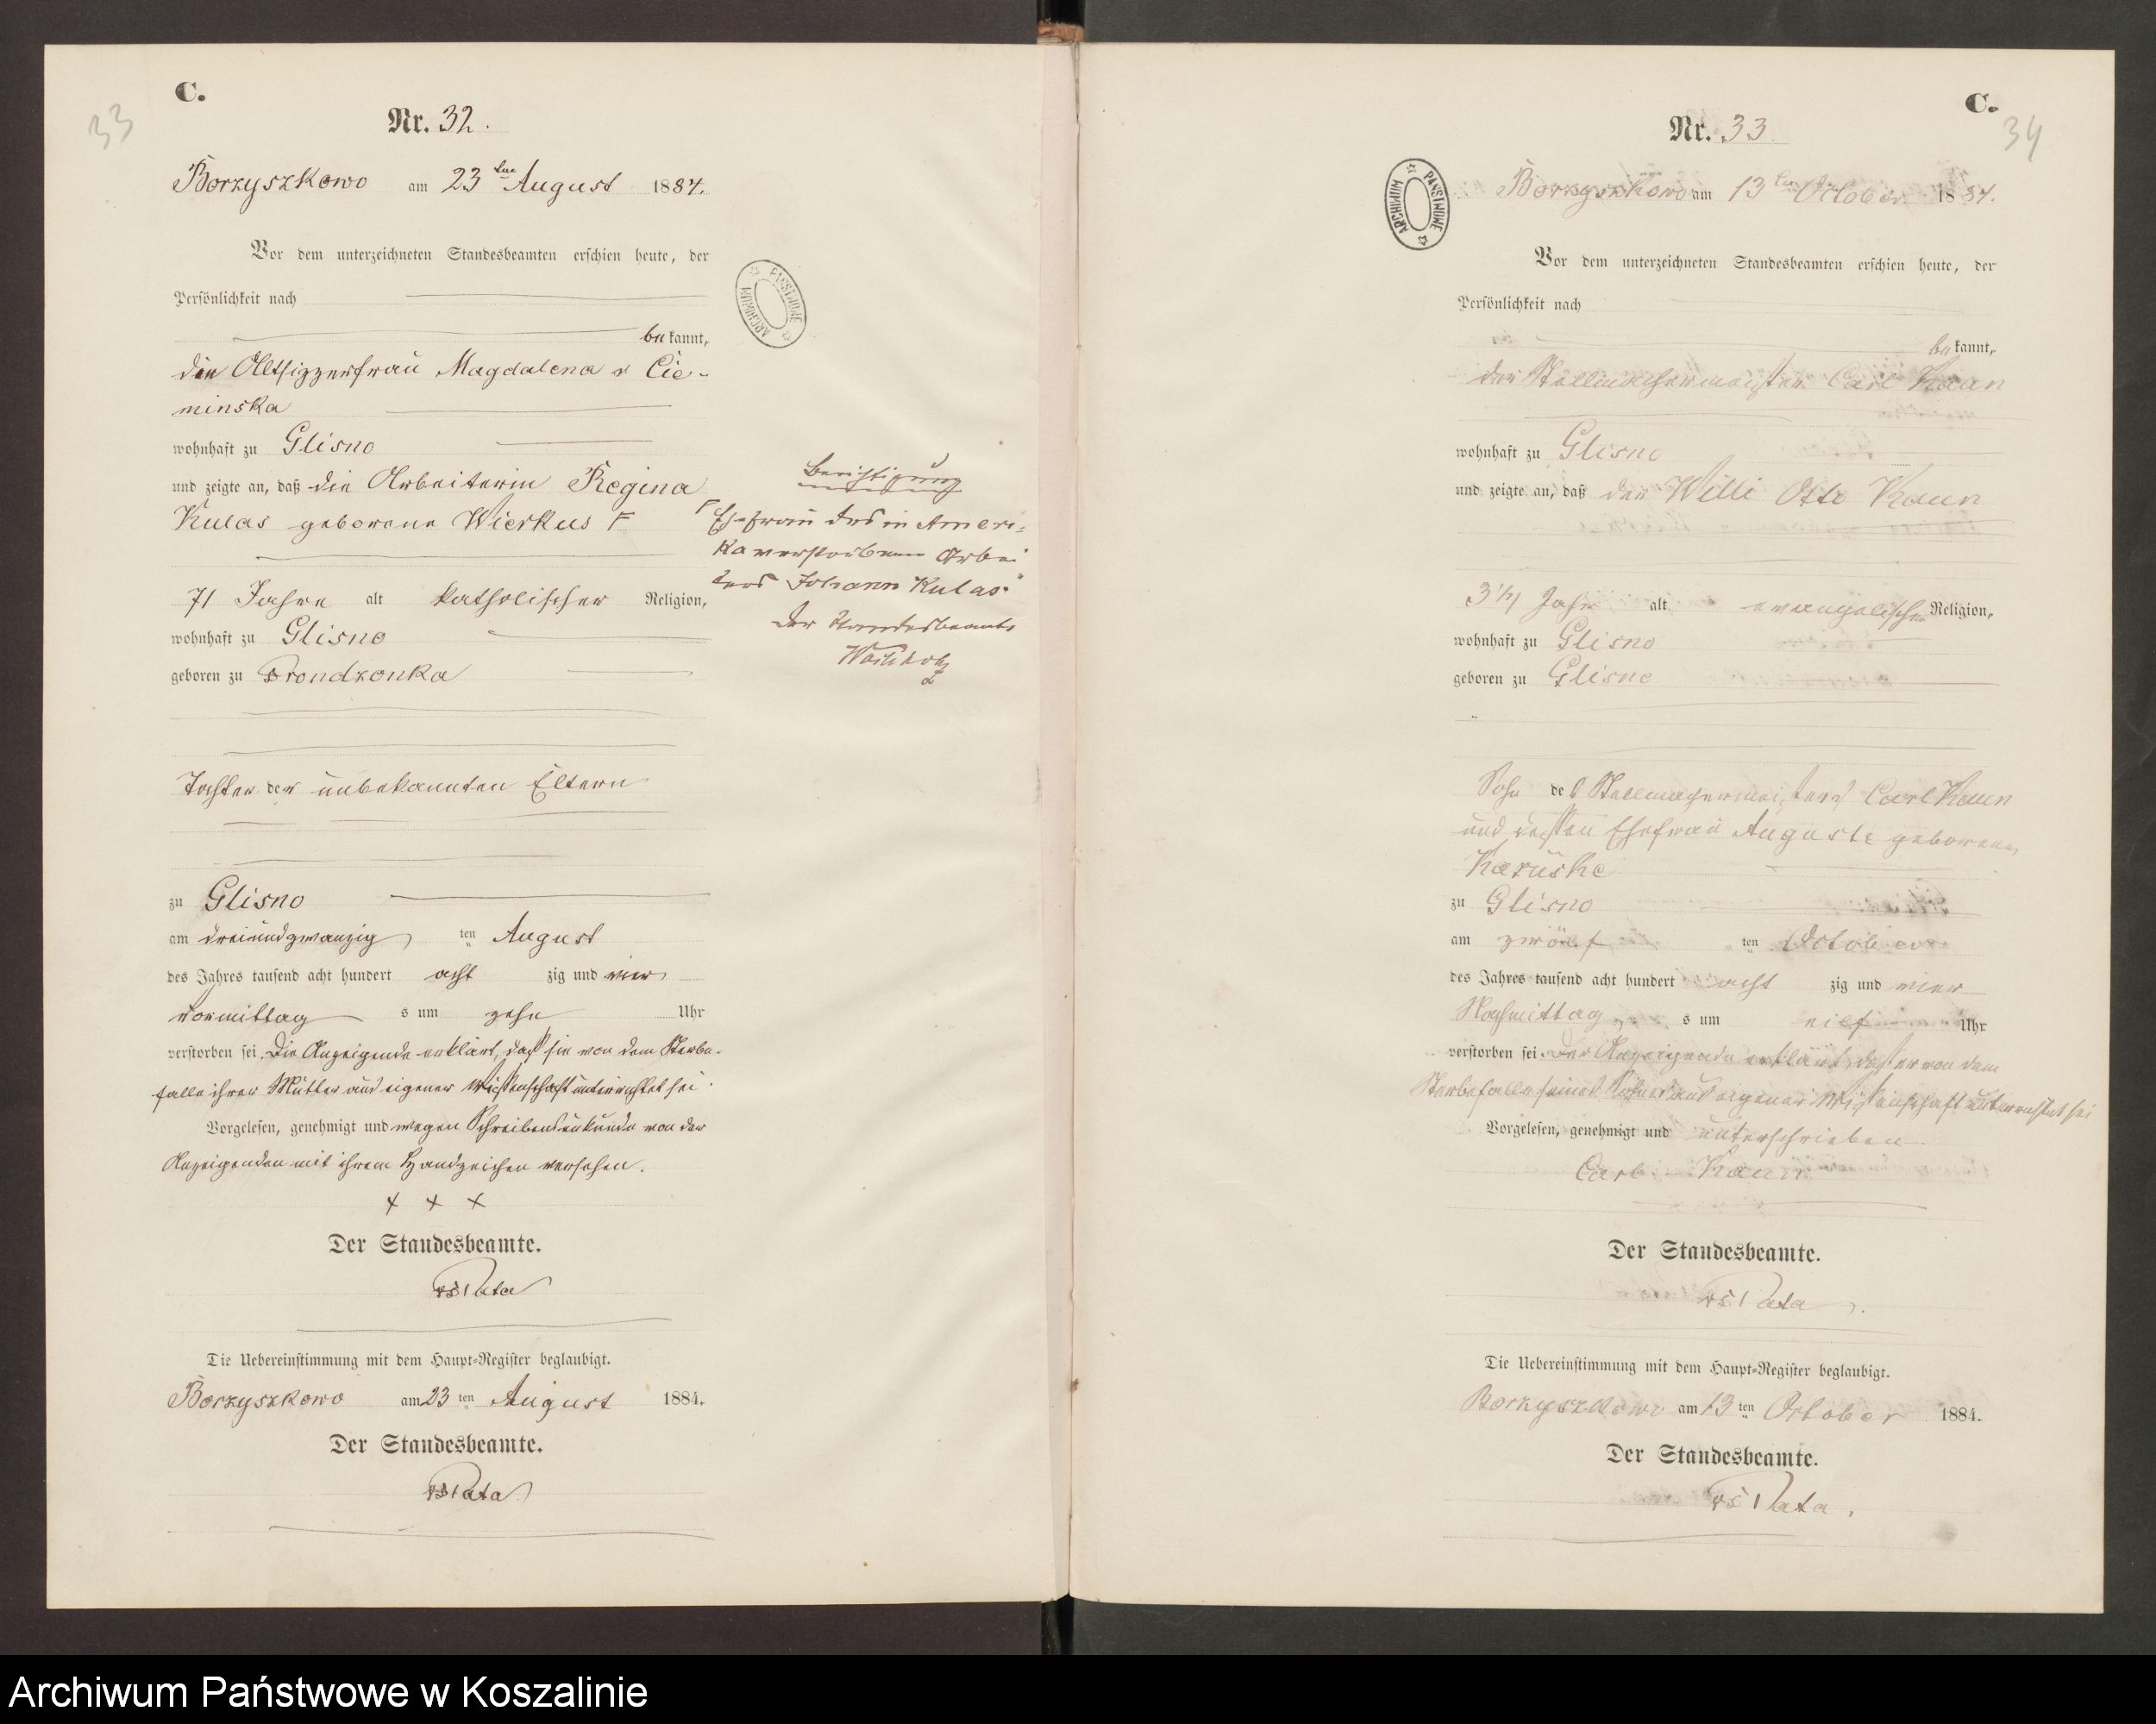 33
C.
Nr. 32.
Borzyszkowo am 23ten August 1884.
Vor dem unterzeichneten Standesbeamten erschien heute, der
Persönlichkeit nach
bekannt,
die Altsitzerfrau Magdalena v Cie-
minska
wohnhaft zu Glisno
und zeigte an, daß die Arbeiterin Regina
Kulas geborene Wierkus F
71 Jahre alt katholischer Religion,
wohnhaft zu Glisno
geboren zu Prondzonka
Tochter der unbekannten Eltern
zu Glisno
am dreiundzwanzig ten August
des Jahres tausend acht hundert acht zig und vier
vormittag s um zehn Uhr
verstorben sei. Die Anzeigende erklärt, daß sie von dem Sterbe-
falle ihrer Mutter aus eigener Wissenschaft unterrichtet sei.
Vorgelesen, genehmigt und wegen Schreibensunkunde von der
Anzeigenden mit ihrem Handzeichen versehen.
+ + +
Der Standesbeamte.
Die Uebereinstimmung mit dem Haupt-Register beglaubigt.
Borzyszkowo am 23 ten August 1884.
Der Standesbeamte.
Berichtigung
F Ehefrau des in Ameri-
ka verstorbenen Arbei
ters Johann Kulas.
Der Standesbeamte
ARCHIWUM PAŃSTWOWE
C.
34
Nr. 33
ARCHIWUM PAŃSTWOWE
Borzyszkowo am 13ten October 1884.
Vor dem unterzeichneten Standesbeamten erschien heute, der
Persönlichkeit nach
bekannt,
der Stellmachermeister Carl Kaun
wohnhaft zu Glisno
und zeigte an, daß der Willi Otto Kaun
3 1/4 Jahr alt evangelischer Religion,
wohnhaft zu Glisno
geboren zu Glisno
Sohn des Stellmachermeisters Carl Kaun
und dessen Ehefrau Auguste geborene
Karüske
zu Glisno
am zwölf ten October
des Jahres tausend acht hundert acht zig und vier
Nachmittag s um eilf Uhr
verstorben sei. Der Anzeigende erklärt, daß er von dem
Sterbefalle seines Sohnes aus eigener Wissenschaft unterrichtet sei
Vorgelesen, genehmigt und unterschrieben
Carl Kaun
Der Standesbeamte.
Die Uebereinstimmung mit dem Haupt-Register beglaubigt.
Borzyszkowo am 13 ten October 1884.
Der Standesbeamte.
Archiwum Państwowe w Koszalinie